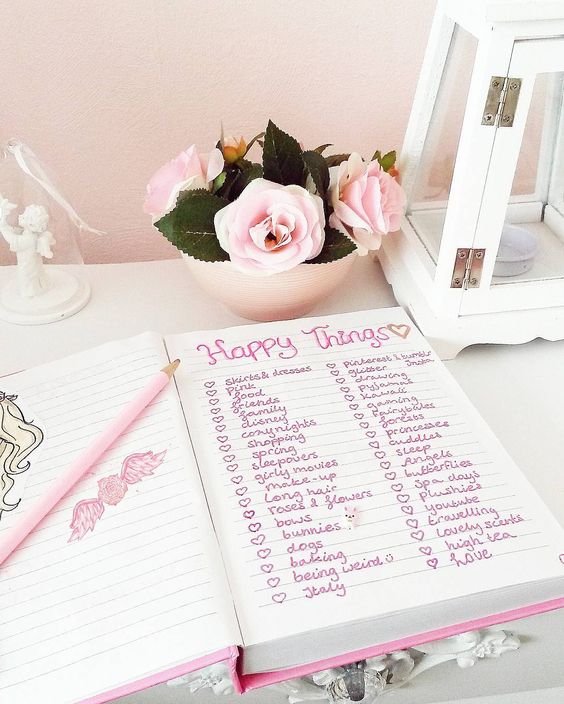 Happy Things
skirts & dresses
Pink
food
friends
family
disney
cozy nights
shopping
spring
sleepovers
girly movies
make-up
long hair
roses & flowers
bows
bunnies
dogs
baking
being weird ☺
Italy
Pinterest & tumblr
Insta
glitter
drawing
Pyjamas
kawaii
gaming
fairytales
forests
princesses
cuddles
sleep
Angels
butterflies
spa days
plushies
youtube
travelling
lovely scents
high tea
love